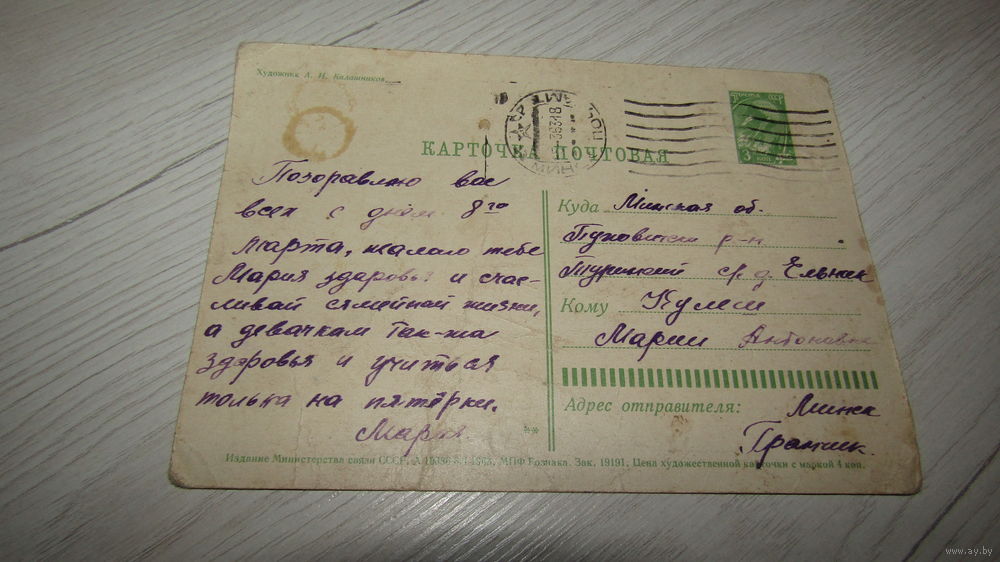 Художник А. И. Калашников
ПОЧТА СССР
3 КОП
КАРТОЧКА ПОЧТОВАЯ
Поздравляю вас
всех с днём 8го
марта, желаю тебе
Мария здаровья и счас-
ливай семейнай жизни,
а девачкам так-жа
здаровья и учиться
толька на пятёрки.
Мария
Куда Минская об.
р-н
с/с д. Ельник
Кому
Марии Антоновне
Адрес отправителя: Минск
Издание Министерства связи СССР. 1963. МПФ Гознака. Зак. 19191. Цена художественной карточки с маркой 4 коп.
www.ay.by